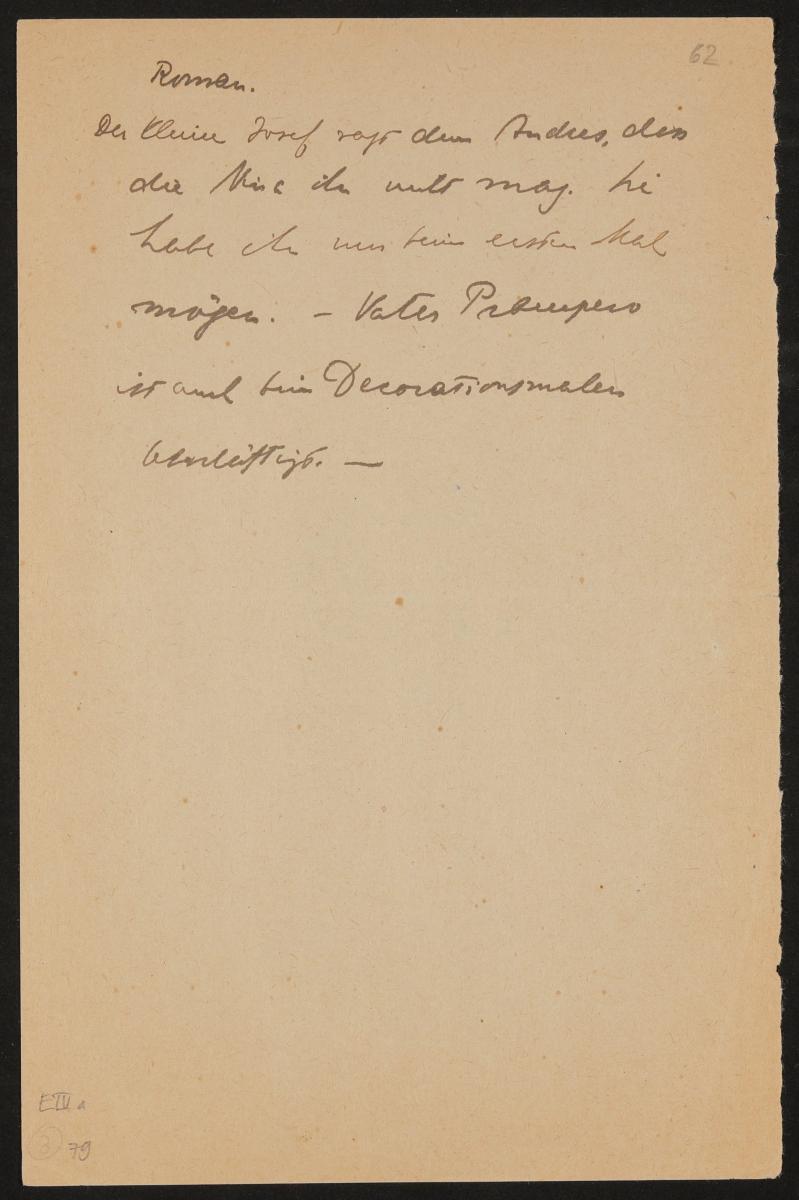 62
Roman.
Der kleine Josef sagt dem Andres, dass
die ihn nicht mag. Sie
habe ihn nur beim ersten Mal
mögen. – Vater Prampero
ist auch beim Decorationsmaler
beschäftigt. —
E IV a
3 79